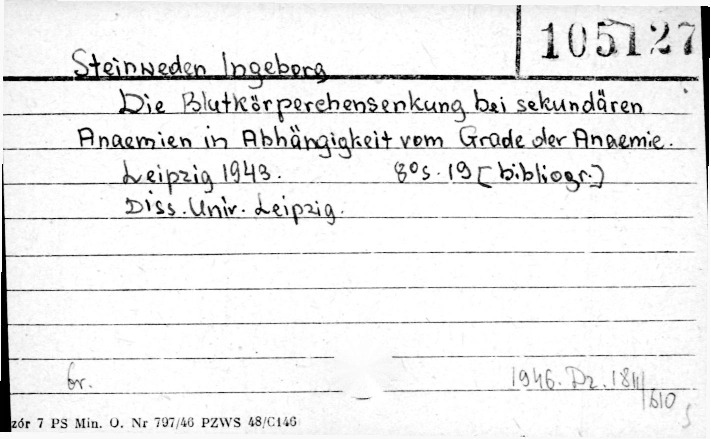 105127
Steinweden Ingeborg
Die Blutkörperchensenkung bei sekundären
Anaemien in Abhängigkeit vom Grade der Anaemie.
Leipzig 1943. 8° s. 19 [bibliogr.]
Diss. Univ. Leipzig.
br.
1946. Dz. 1811/610
zór 7 PS Min. O. Nr 797/46 PZWS 48/C146